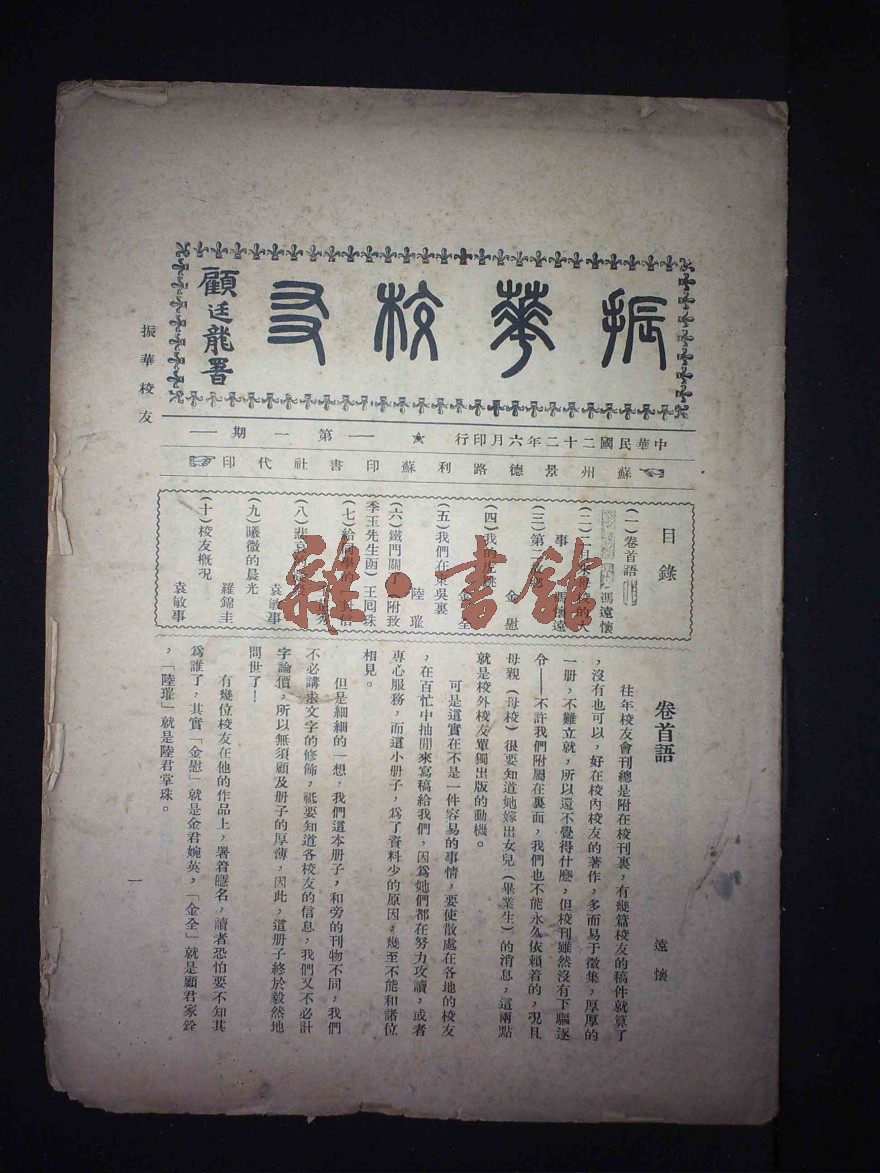 振華校友
顧廷龍署
振華校友
中華民國二十二年六月印行 ★ 第一期
蘇州景德路利蘇印書社代印
目錄
(一)卷首語 馮遠懷
(二)
來母校的大
事 馮懷遠
(三)第二 金慰
(四)我的 金全
(五)我們在東吳裏 陸璀
(六)鐵門關了 附致
季玉先生函) 王囘珠
(七)給同學的 封信
(八)悲哀的 袁敏事
(九)曦微的晨光 羅錦圭
(十)校友概况 袁敏事
卷首語 遠懷
往年校友會刊總是附在校刊裏,有幾篇校友的稿件就算了
,沒有也可以,好在校內校友的著作,多而易于徵集,厚厚的
一册,不難立就,所以還不覺得什麽,但校刊雖然沒有下驅逐
令——不許我們附屬在裏面,我們也不能永久依賴着的,况且
母親(母校)很要知道她嫁出女兒(畢業生)的消息,這兩點
就是校外校友單獨出版的動機。
可是這實在不是一件容易的事情,要使散處在各地的校友
,在百忙中抽閒來寫稿給我們,因為她們都在努力攻讀,或者
專心服務,而這小册子,為了資料少的原因,幾至不能和諸位
相見。
但是細細的一想,我們這本册子,和旁的刊物不同,我們
不必講求文字的修飾,祇要知道各校友的信息,我們又不必計
字論價,所以無須顧及册子的厚薄,因此,這册子終於毅然地
問世了!
有幾位校友在他的作品上,署着隱名,讀者恐怕要不知其
為誰了,其實「金慰」就是金君婉英,「金全」就是顧君家銓
,「陸璀」就是陸君掌珠。
一
雜·書館